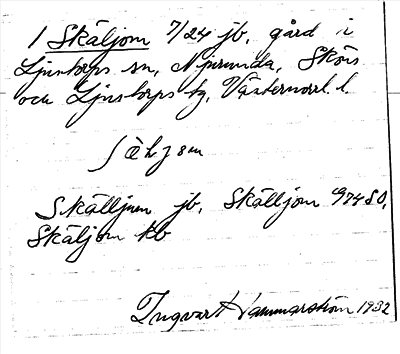 1 Skäljom 7/24 jb, gård i
Ljustorps sn, Njurunda, Sköns
och Ljustorps tg, Västernorrl. l
ʃæ̀ljɔm
Skälljum jb, Skälljom G974SO,
Skäljom kb
Ingvar Hammarström 1932